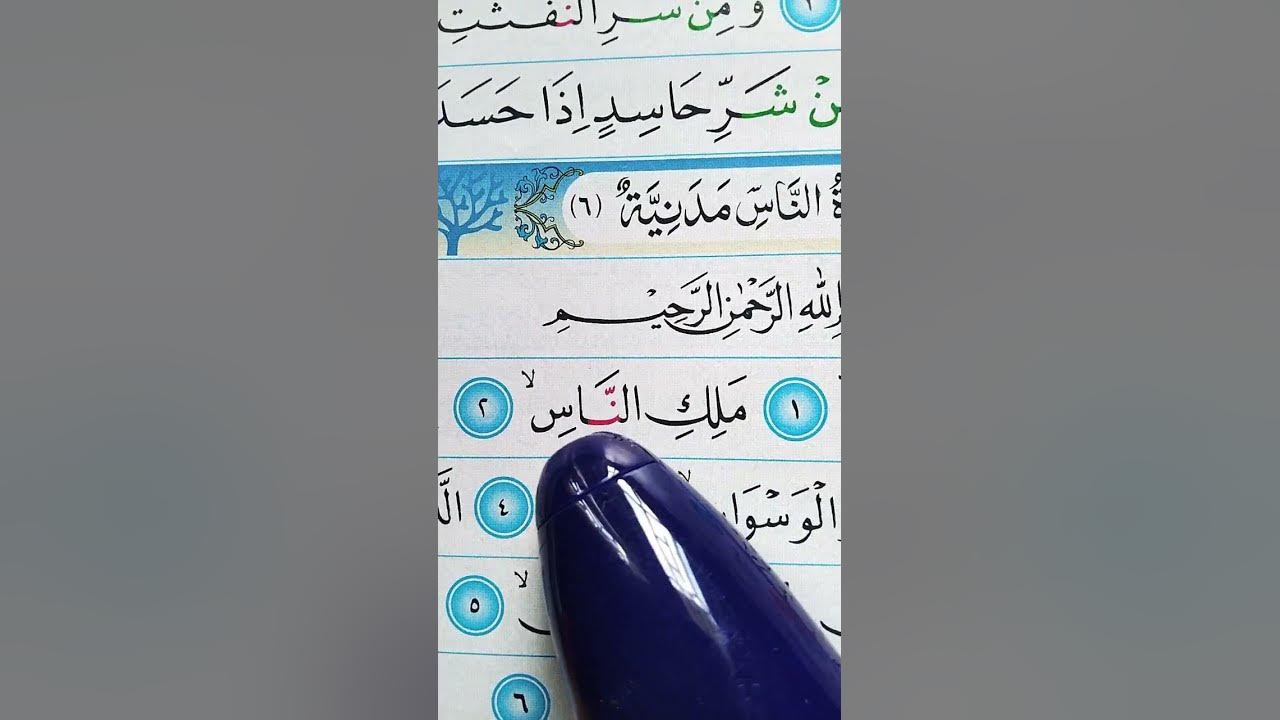 ٣ وَ مِنْ شَرِّ النَّفّٰثٰتِ
نْ شَرِّ حَاسِدٍ اِذَا حَسَدَ
ةُ النَّاسِ مَدَنِيَّةٌ (٦)
اللهِ الرَّحْمٰنِ الرَّحِيْمِ
١ مَلِكِ النَّاسِ ۙ ٢
الْوَسْوَا ۙ ٤ الَّ
ۙ ٥
٦